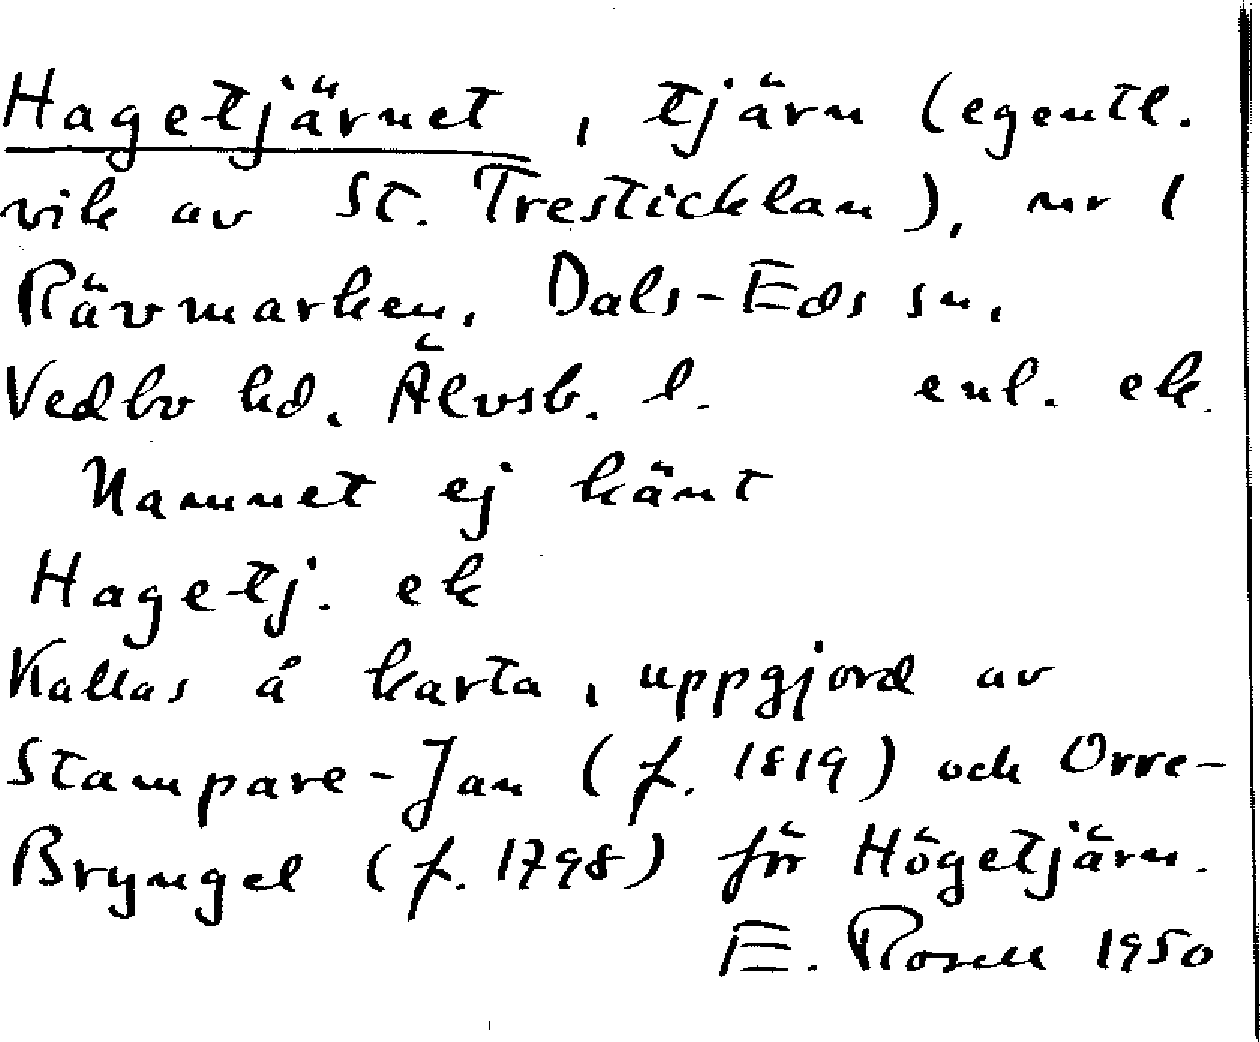 Hagetjärnet, tjärn (egentl.
vik av St. Tresticklan), nr 1
Rävmarken, Dals-Eds sn,
Vedbo hd. Älvsb. l. enl. ek.
Namnet ej känt
Hagetj. ek
Kallas å karta, uppgjord av
Stampare-Jan (f. 1819) och Orre-
Bryngel (f. 1798) för Högetjärn.
E. Rosell 1950